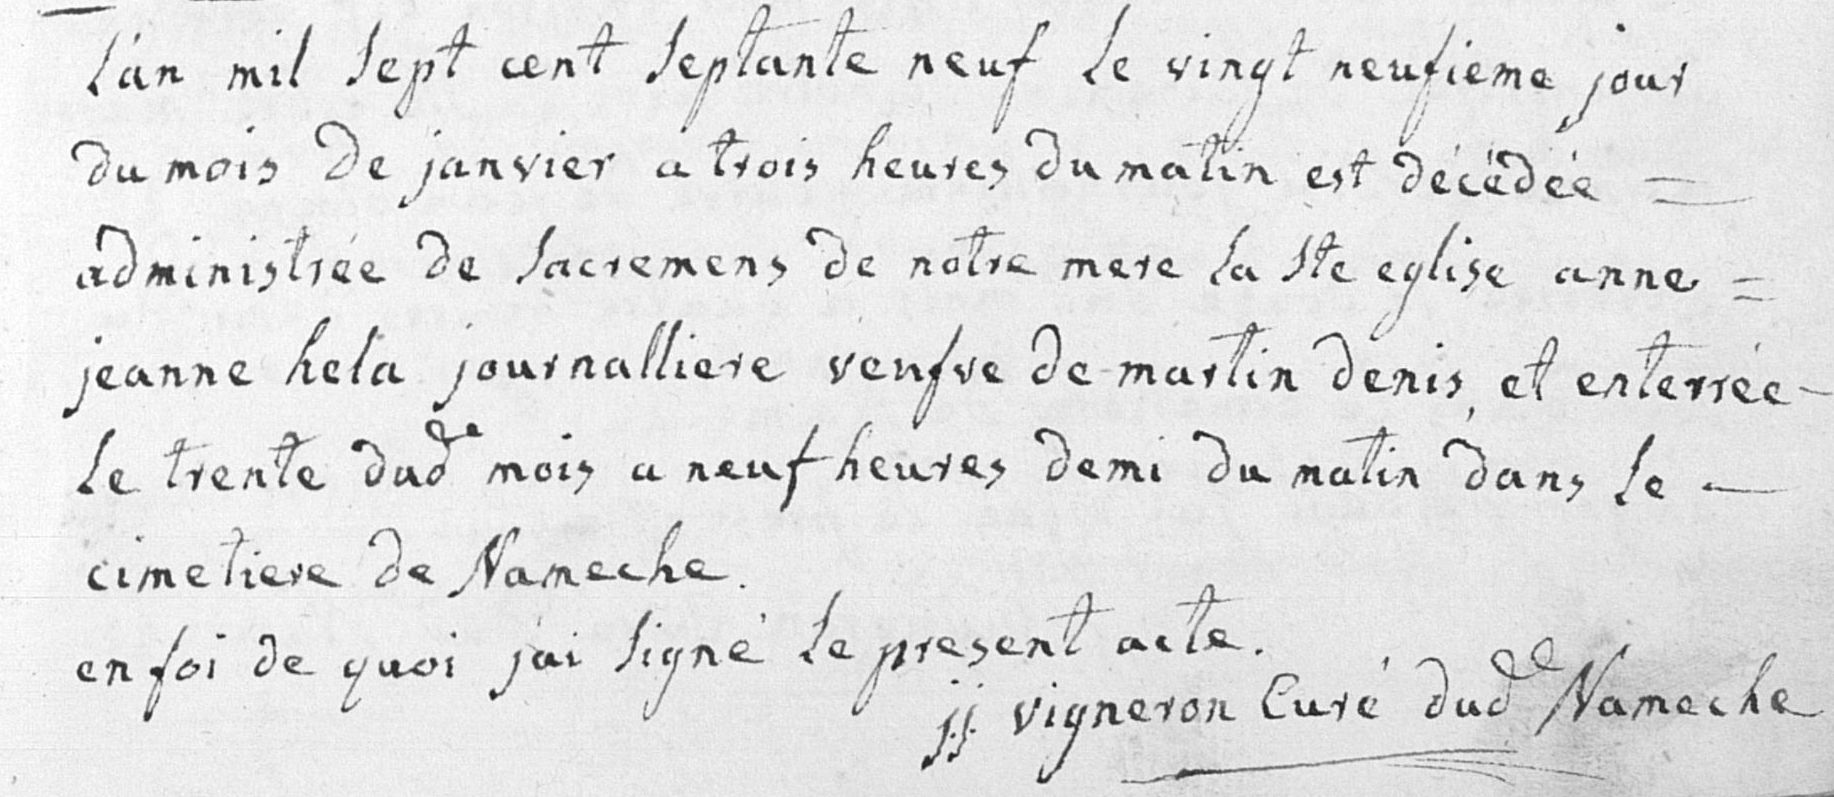 l'an mil sept cent septante neuf le vingt neufieme jour
du mois de janvier a trois heures du matin est décédée =
administrée de sacremens de notre mere la Ste eglise anne =
jeanne hela journalliere veufve de martin denis, et enterrée -
le trente dud mois a neuf heures demi du matin dans le -
cimetiere de Nameche.
en foi de quoi j'ai signé le present acte.
jj vigneron Curé dud Nameche